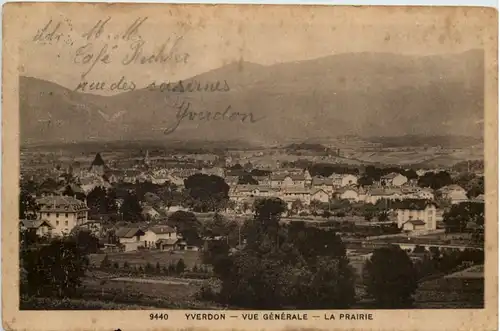 adr. M. M.
Café Bechler
rue des casernes
Yverdon
9440 YVERDON – VUE GÉNÉRALE – LA PRAIRIE